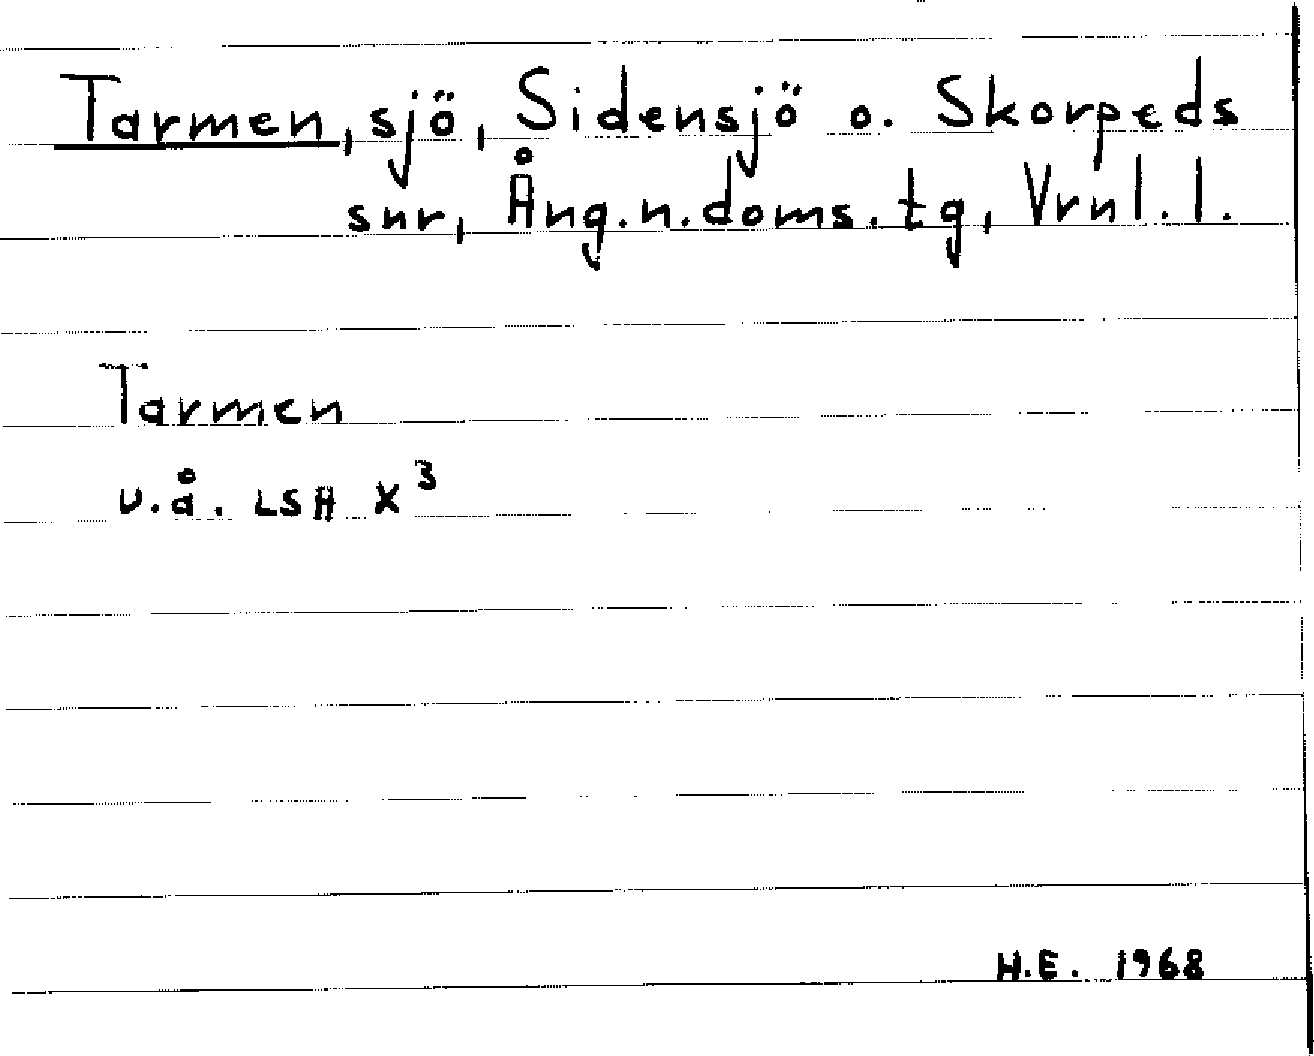 Tarmen, sjö, Sidensjö o. Skorpeds
snr, Ång.n.doms.tg, Vrnl.l.
Tarmen
u.å. LSA X³
H.E. 1968